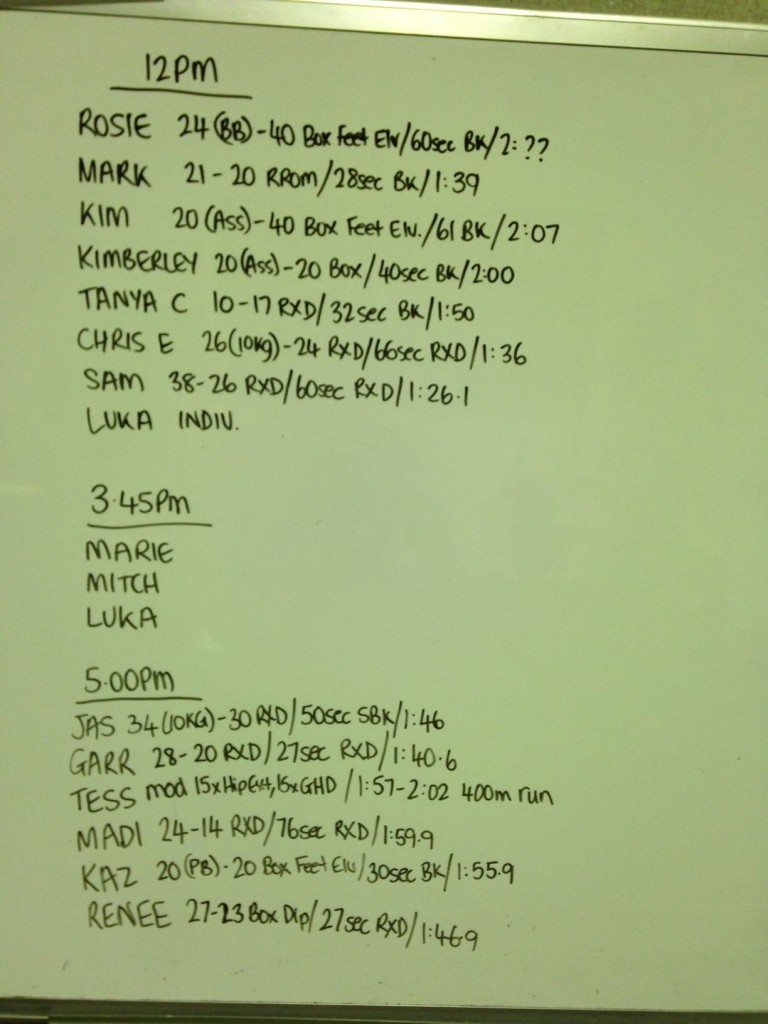 12PM
ROSIE 24(BB)-40 Box Feet Elv/60sec BK/2:??
MARK 21-20 RROM/28sec BK/1:39
KIM 20(Ass)-40 Box Feet Elv./61 BK/2:07
KIMBERLEY 20(Ass)-20 Box/40sec BK/2:00
TANYA C 10-17 RXD/32sec BK/1:50
CHRIS E 26(10kg)-24 RXD/66sec RXD/1:36
SAM 38-26 RXD/60sec RXD/1:26.1
LUKA INDIV.
3.45PM
MARIE
MITCH
LUKA
5.00PM
JAS 34(10KG)-30 RXD/50sec SBK/1:46
GARR 28-20 RXD/27sec RXD/1:40.6
TESS mod 15xHipExt,15xGHD/1:57-2:02 400m run
MADI 24-14 RXD/76sec RXD/1:59.9
KAZ 20(PB)-20 Box Feet Elv/30sec BK/1:55.9
RENEE 27-23 Box Dip/27sec RXD/1:46.9